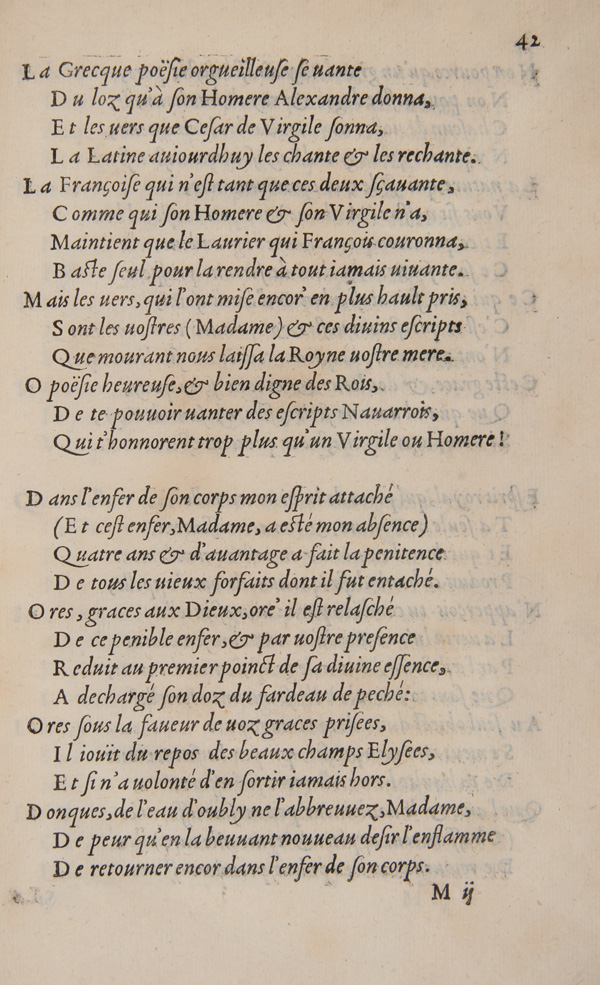 42
La Grecque poësie orgueilleuſe ſe uante
Du loz qu'à ſon Homere Alexandre donna,
Et les uers que Ceſar de Virgile ſonna,
La Latine auiourdhuy les chante & les rechante.
La Françoiſe qui n'eſt tant que ces deux ſçauante,
Comme qui ſon Homere & ſon Virgile n'a,
Maintient que le Laurier qui François couronna,
Baſte ſeul pour la rendre à tout iamais uiuante.
Mais les uers, qui l'ont miſe encor' en plus hault pris,
Sont les uoſtres (Madame) & ces diuins eſcripts
Que mourant nous laiſſa la Royne uoſtre mere.
O poëſie heureuſe, & bien digne des Rois,
De te pouuoir uanter des eſcripts Nauarrois,
Qui t'honnorent trop plus qu'un Virgile ou Homere!
Dans l'enfer de ſon corps mon eſprit attaché
(Et ceſt enfer, Madame, a eſté mon abſence)
Quatre ans & d'auantage a fait la penitence
De tous les uieux forfaits dont il fut entaché.
Ores, graces aux Dieux, ore' il eſt relaſché
De ce penible enfer, & par uoſtre preſence
Reduit au premier poinct de ſa diuine eſſence,
A dechargé ſon doz du fardeau de peché:
Ores ſous la faueur de uoz graces priſees,
Il iouït du repos des beaux champs Elyſees,
Et ſi n'a uolonté d'en ſortir iamais hors.
Donques, de l'eau d'oubly ne l'abbreuuez, Madame,
De peur qu'en la beuuant nouueau deſir l'enflamme
De retourner encor dans l'enfer de ſon corps.
M ij